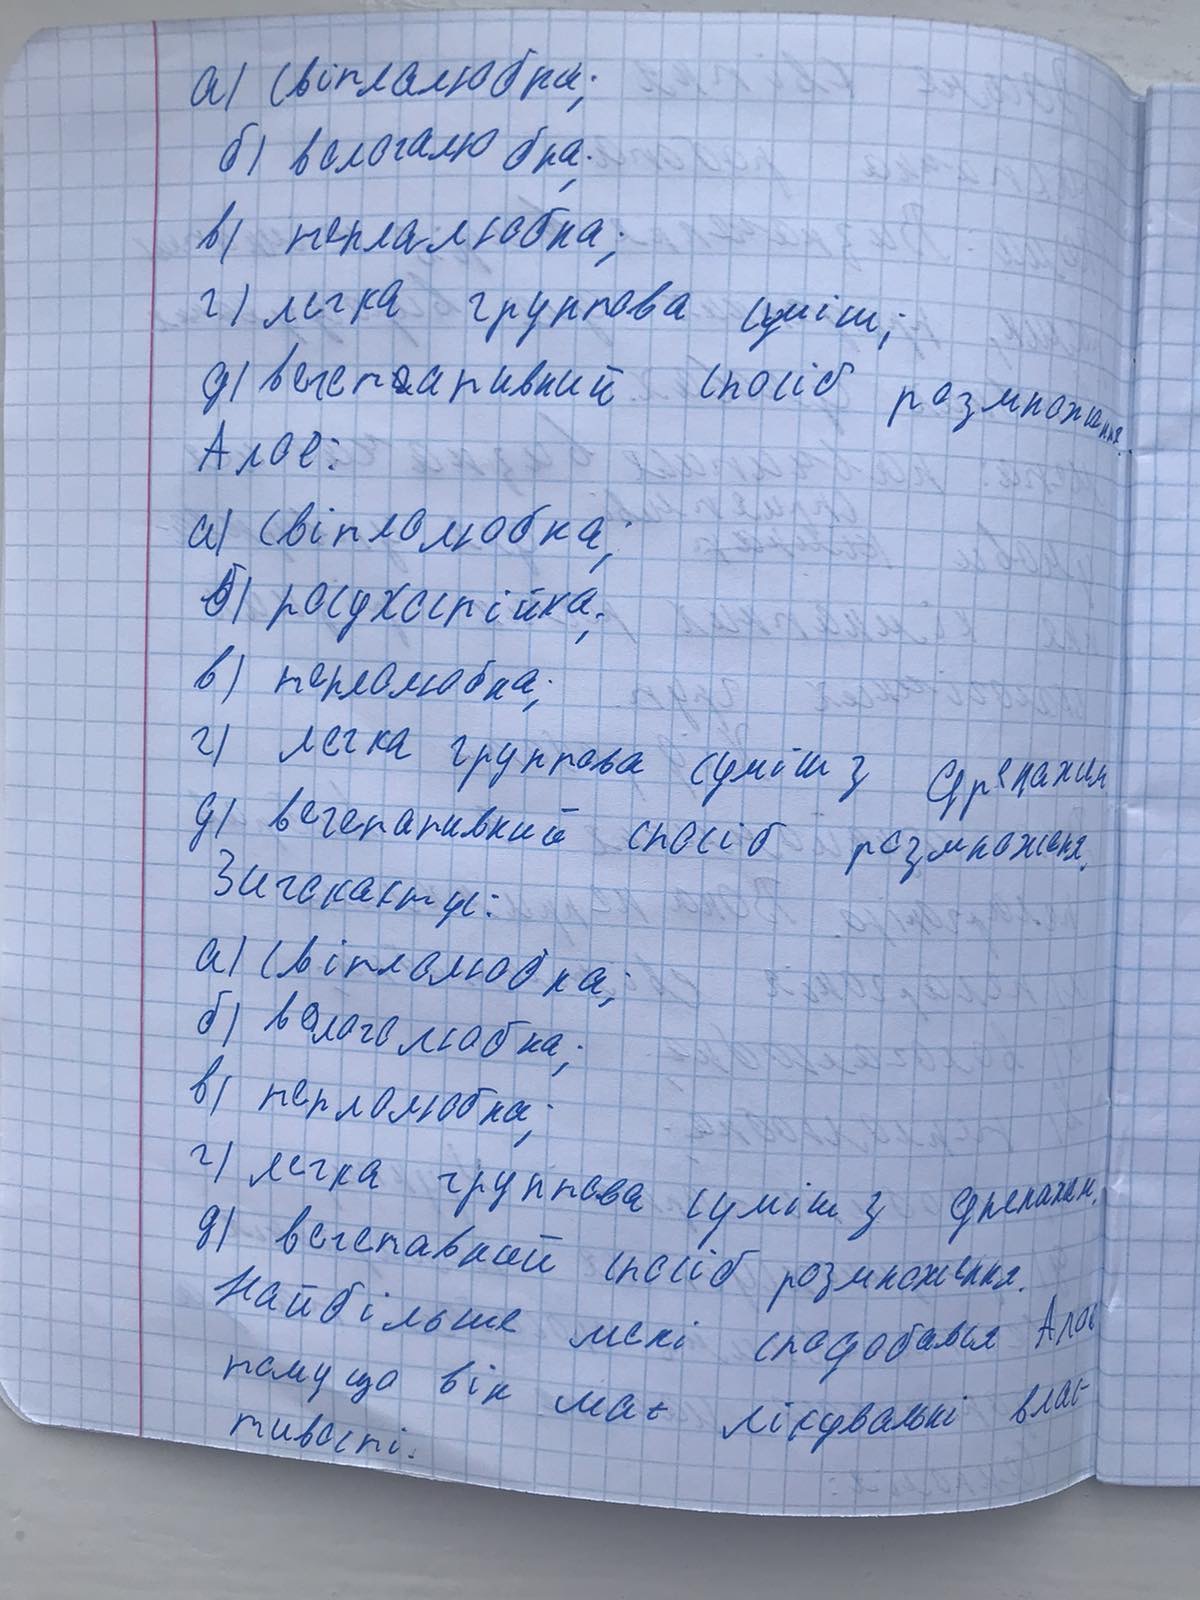 а) світлолюбна;
б) вологолюбна;
в) теплолюбна;
г) легка грунтова суміш;
д) вегетативний спосіб розмноження
Алое:
а) світлолюбна;
б) посухостійка;
в) теплолюбна;
г) легка грунтова суміш з дренажем
д) вегетативний спосіб розмноженя.
Зигокактус:
а) світлолюбна;
б) вологолюбна;
в) теплолюбна;
г) легка грунтова суміш з дренажем.
д) вегетавний спосіб розмноження.
Найбільше мені сподобався Алое
тому що він має лікувальні влас-
тивості.